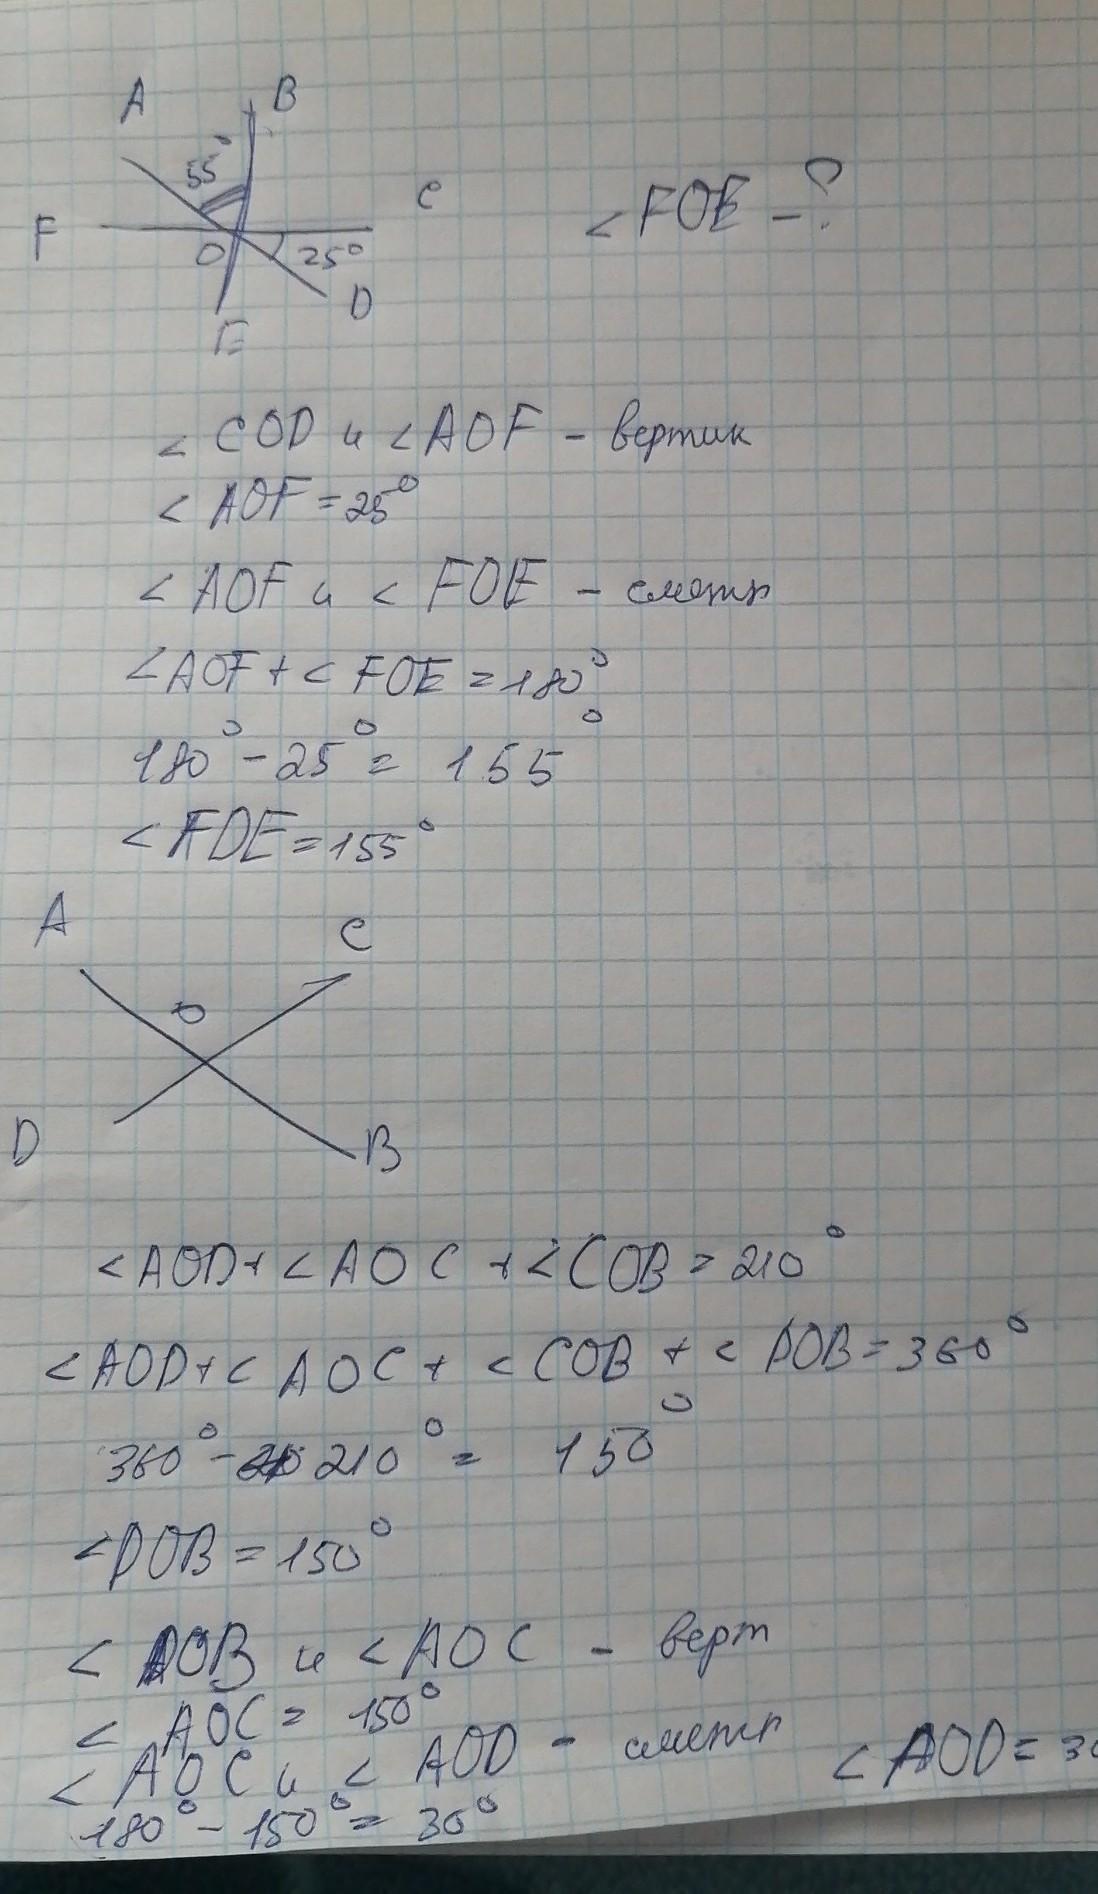 A B
55°
F C
O 25°
D
E
<FOE - ?
<COD и <AOF - вертик
<AOF = 25°
<AOF и <FOE - смежн
<AOF + <FOE = 180°
180° - 25° = 155°
<FOE = 155°
A C
O
D B
<AOD + <AOC + <COB = 210°
<AOD + <AOC + <COB + <DOB = 360°
360° - 210° = 150°
<DOB = 150°
<DOB и <AOC - верт
<AOC = 150°
<AOC и <AOD - смежн <AOD = 30
180° - 150° = 30°